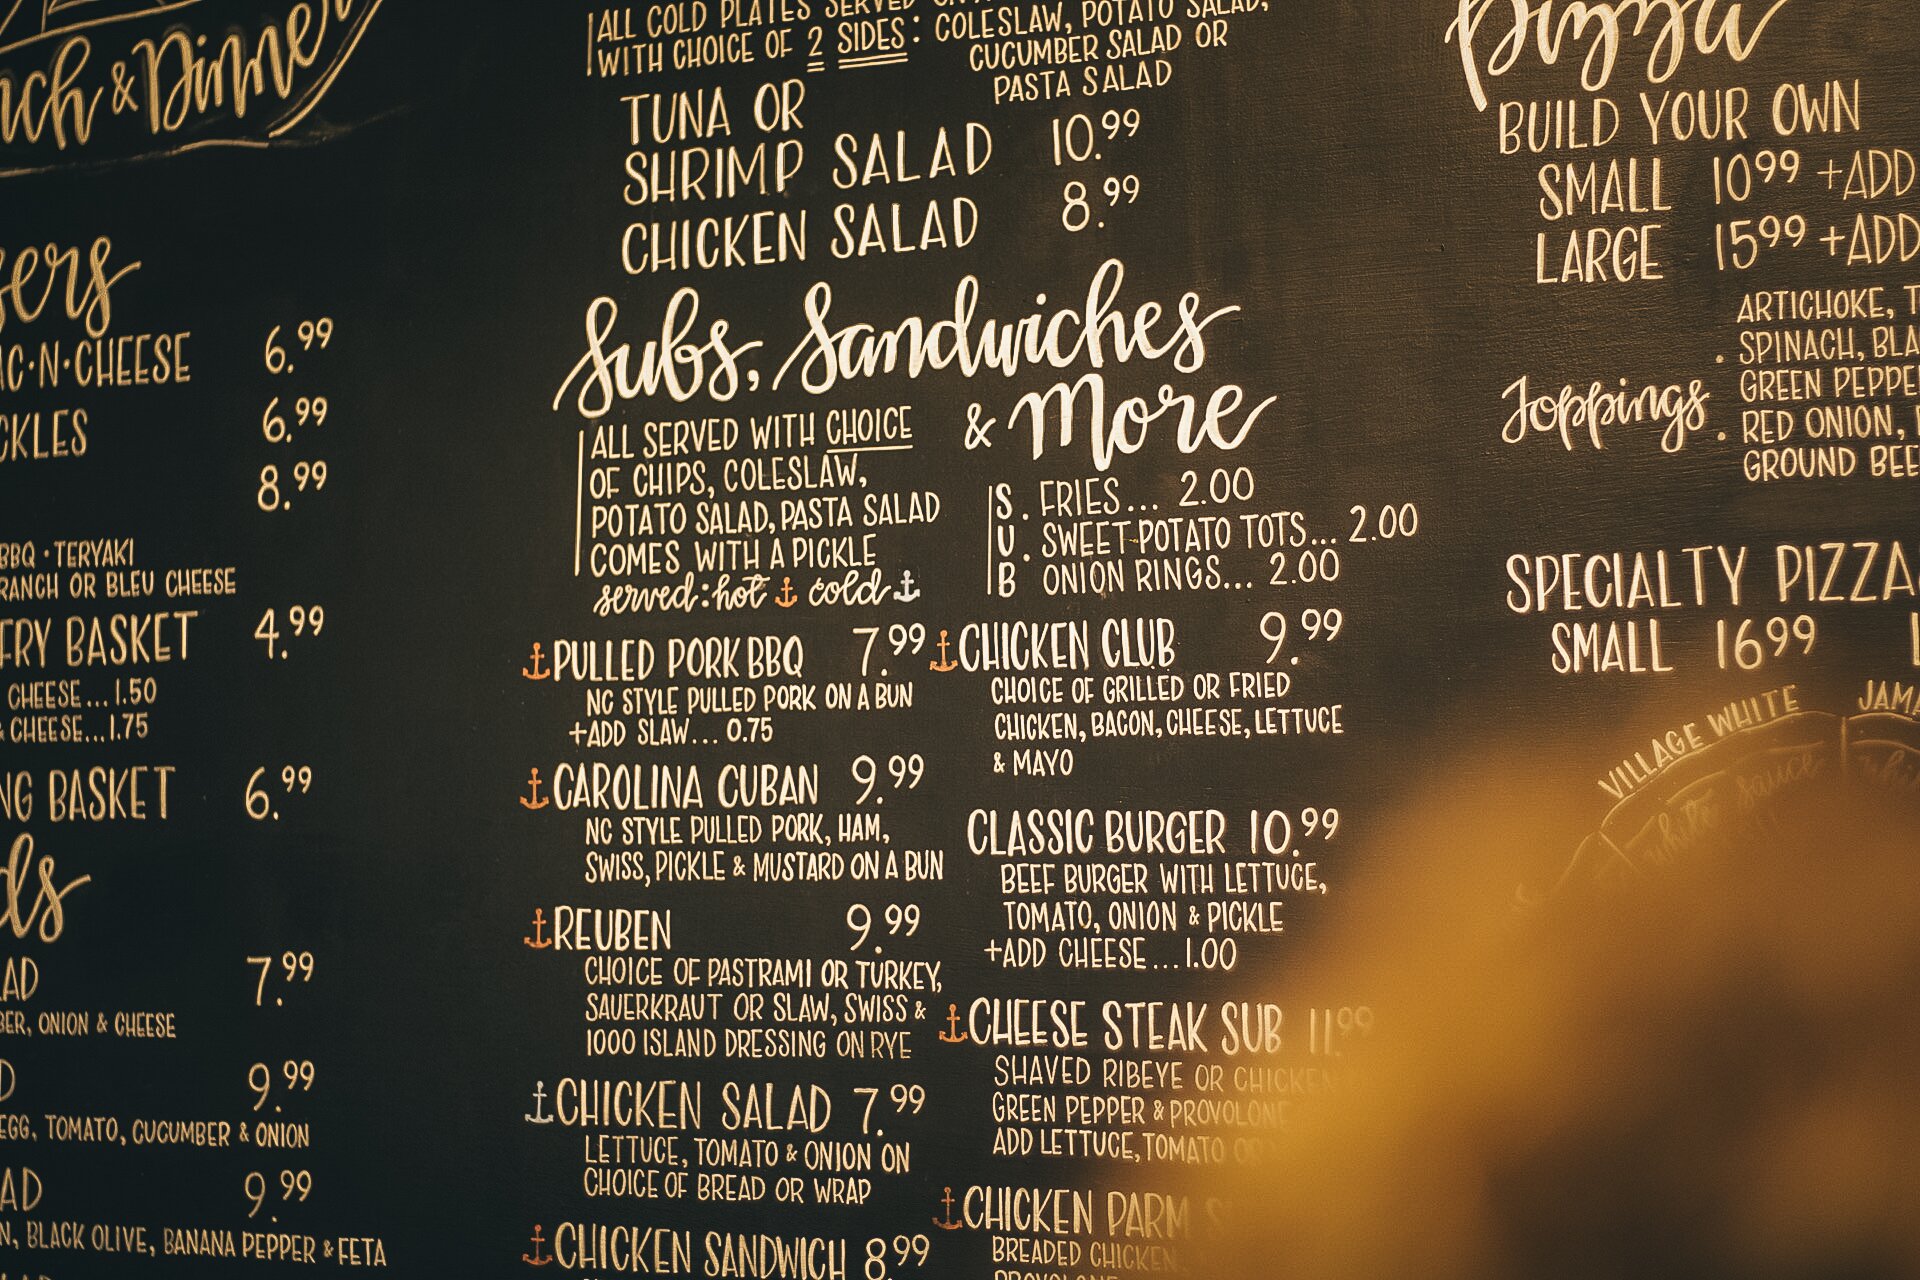 & Dinner
6.99
CKLES 6.99
8.99
BBQ · TERYAKI
RANCH OR BLEU CHEESE
FRY BASKET 4.99
CHEESE...1.50
& CHEESE...1.75
BASKET 6.99
7.99
ONION & CHEESE
9.99
EGG, TOMATO, CUCUMBER & ONION
9.99
BLACK OLIVE, BANANA PEPPER & FETA
ALL COLD PLATES SERVED
WITH CHOICE OF 2 SIDES: COLESLAW, POTATO SALAD,
CUCUMBER SALAD OR
PASTA SALAD
TUNA OR
SHRIMP SALAD 10.99
CHICKEN SALAD 8.99
Subs, Sandwiches
& More
ALL SERVED WITH CHOICE
OF CHIPS, COLESLAW,
POTATO SALAD, PASTA SALAD
COMES WITH A PICKLE
served: hot cold
S . FRIES... 2.00
U . SWEET POTATO TOTS... 2.00
B ONION RINGS... 2.00
PULLED PORK BBQ 7.99
NC STYLE PULLED PORK ON A BUN
+ADD SLAW... 0.75
CAROLINA CUBAN 9.99
NC STYLE PULLED PORK, HAM,
SWISS, PICKLE & MUSTARD ON A BUN
REUBEN 9.99
CHOICE OF PASTRAMI OR TURKEY,
SAUERKRAUT OR SLAW, SWISS &
1000 ISLAND DRESSING ON RYE
CHICKEN SALAD 7.99
LETTUCE, TOMATO & ONION ON
CHOICE OF BREAD OR WRAP
CHICKEN SANDWICH 8.99
CHICKEN CLUB 9.99
CHOICE OF GRILLED OR FRIED
CHICKEN, BACON, CHEESE, LETTUCE
& MAYO
CLASSIC BURGER 10.99
BEEF BURGER WITH LETTUCE,
TOMATO, ONION & PICKLE
+ADD CHEESE...1.00
CHEESE STEAK SUB 11.99
SHAVED RIBEYE OR CHICKEN
GREEN PEPPER & PROVOLONE
ADD LETTUCE, TOMATO
CHICKEN PARM
BREADED CHICKEN
Pizza
BUILD YOUR OWN
SMALL 10.99 +ADD
LARGE 15.99 +ADD
Toppings
ARTICHOKE,
. SPINACH,
GREEN PEPPE
. RED ONION,
GROUND BEE
SPECIALTY PIZZA
SMALL 16.99
VILLAGE WHITE
white sauce